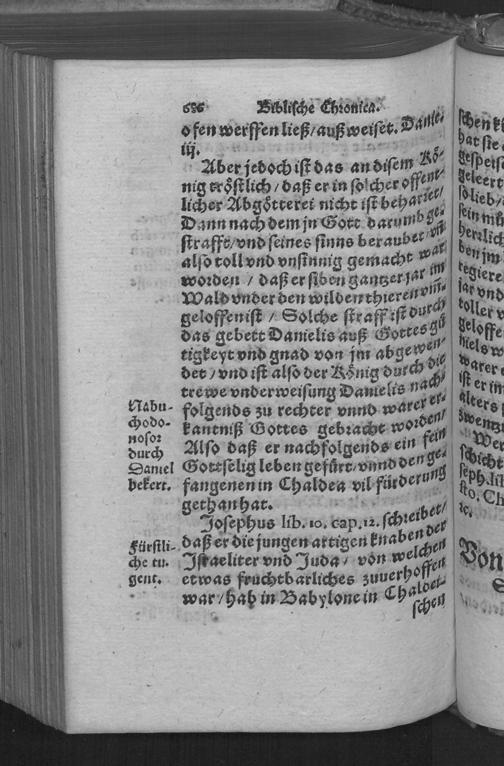 686 Biblische Chronica.
ofen werffen ließ/ außweiset. Danie.
iij.
Aber jedoch ist das an disem Kö-
nig tröstlich/ daß er in solcher offent-
licher Abgötterei nicht ist beharret/
Dann nach dem jn Gott darumb ge-
strafft/ vnd seines sinns beraubet/ vñ
also toll vnd vnsinnig gemacht war
worden / daß er siben gantzer jar im
Wald vnder den wilden thieren vm̃-
geloffen ist / Solche straff ist durch
das gebett Danielis auß Gottes gü
tigkeyt vnd gnad von jm abgewen-
det / vnd ist also der König durch die
trewe vnderweisung Danielis nach-
folgends zu rechter vnnd warer er-
kantniß Gottes gebracht worden/
Also daß er nachfolgends ein fein
Gottselig leben gefürt/ vnnd den ge-
fangenen in Chaldea vil fürderung
gethan hat.
Nabu-
chodo-
nosor
durch
Daniel
bekert.
Josephus lib. 10. cap. 12. schreibet/
daß er die jungen artigen knaben der
Israeliter vnd Juda/ von welchen
etwas fruchtbarliches zuuerhoffen
war/ hab in Babylone in Chaldei-
schen
Fürstli-
che tu-
gent.
schen k
hat sie
gespeis
geleert
so lieb/
sein mü
herrlich
ben jm
regiere
jar vnd
toller v
geloffe
niels w
warer e
ist er im
alters
zwentz
Wer
schicht
seph. li
sto. Ch
ic.
Von
S